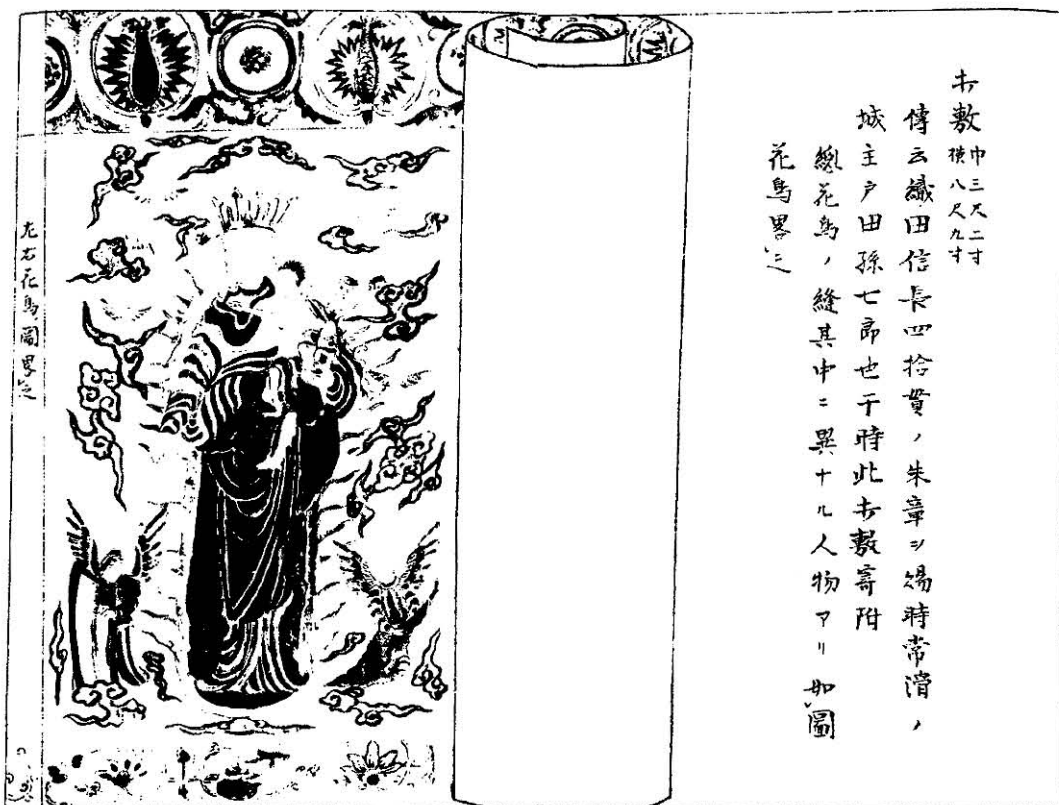 打敷 巾三尺二寸
横八尺九寸
傳云織田信長四拾貫ノ朱章ヲ賜時常滑ノ
城主戸田孫七郎也于時此打敷寄附
縂花鳥ノ縫其中ニ異ナル人物アリ如圖
花鳥畧之
左右花鳥圖畧之